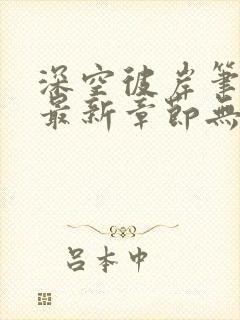 深空彼岸筆
最新章節無
呂本中